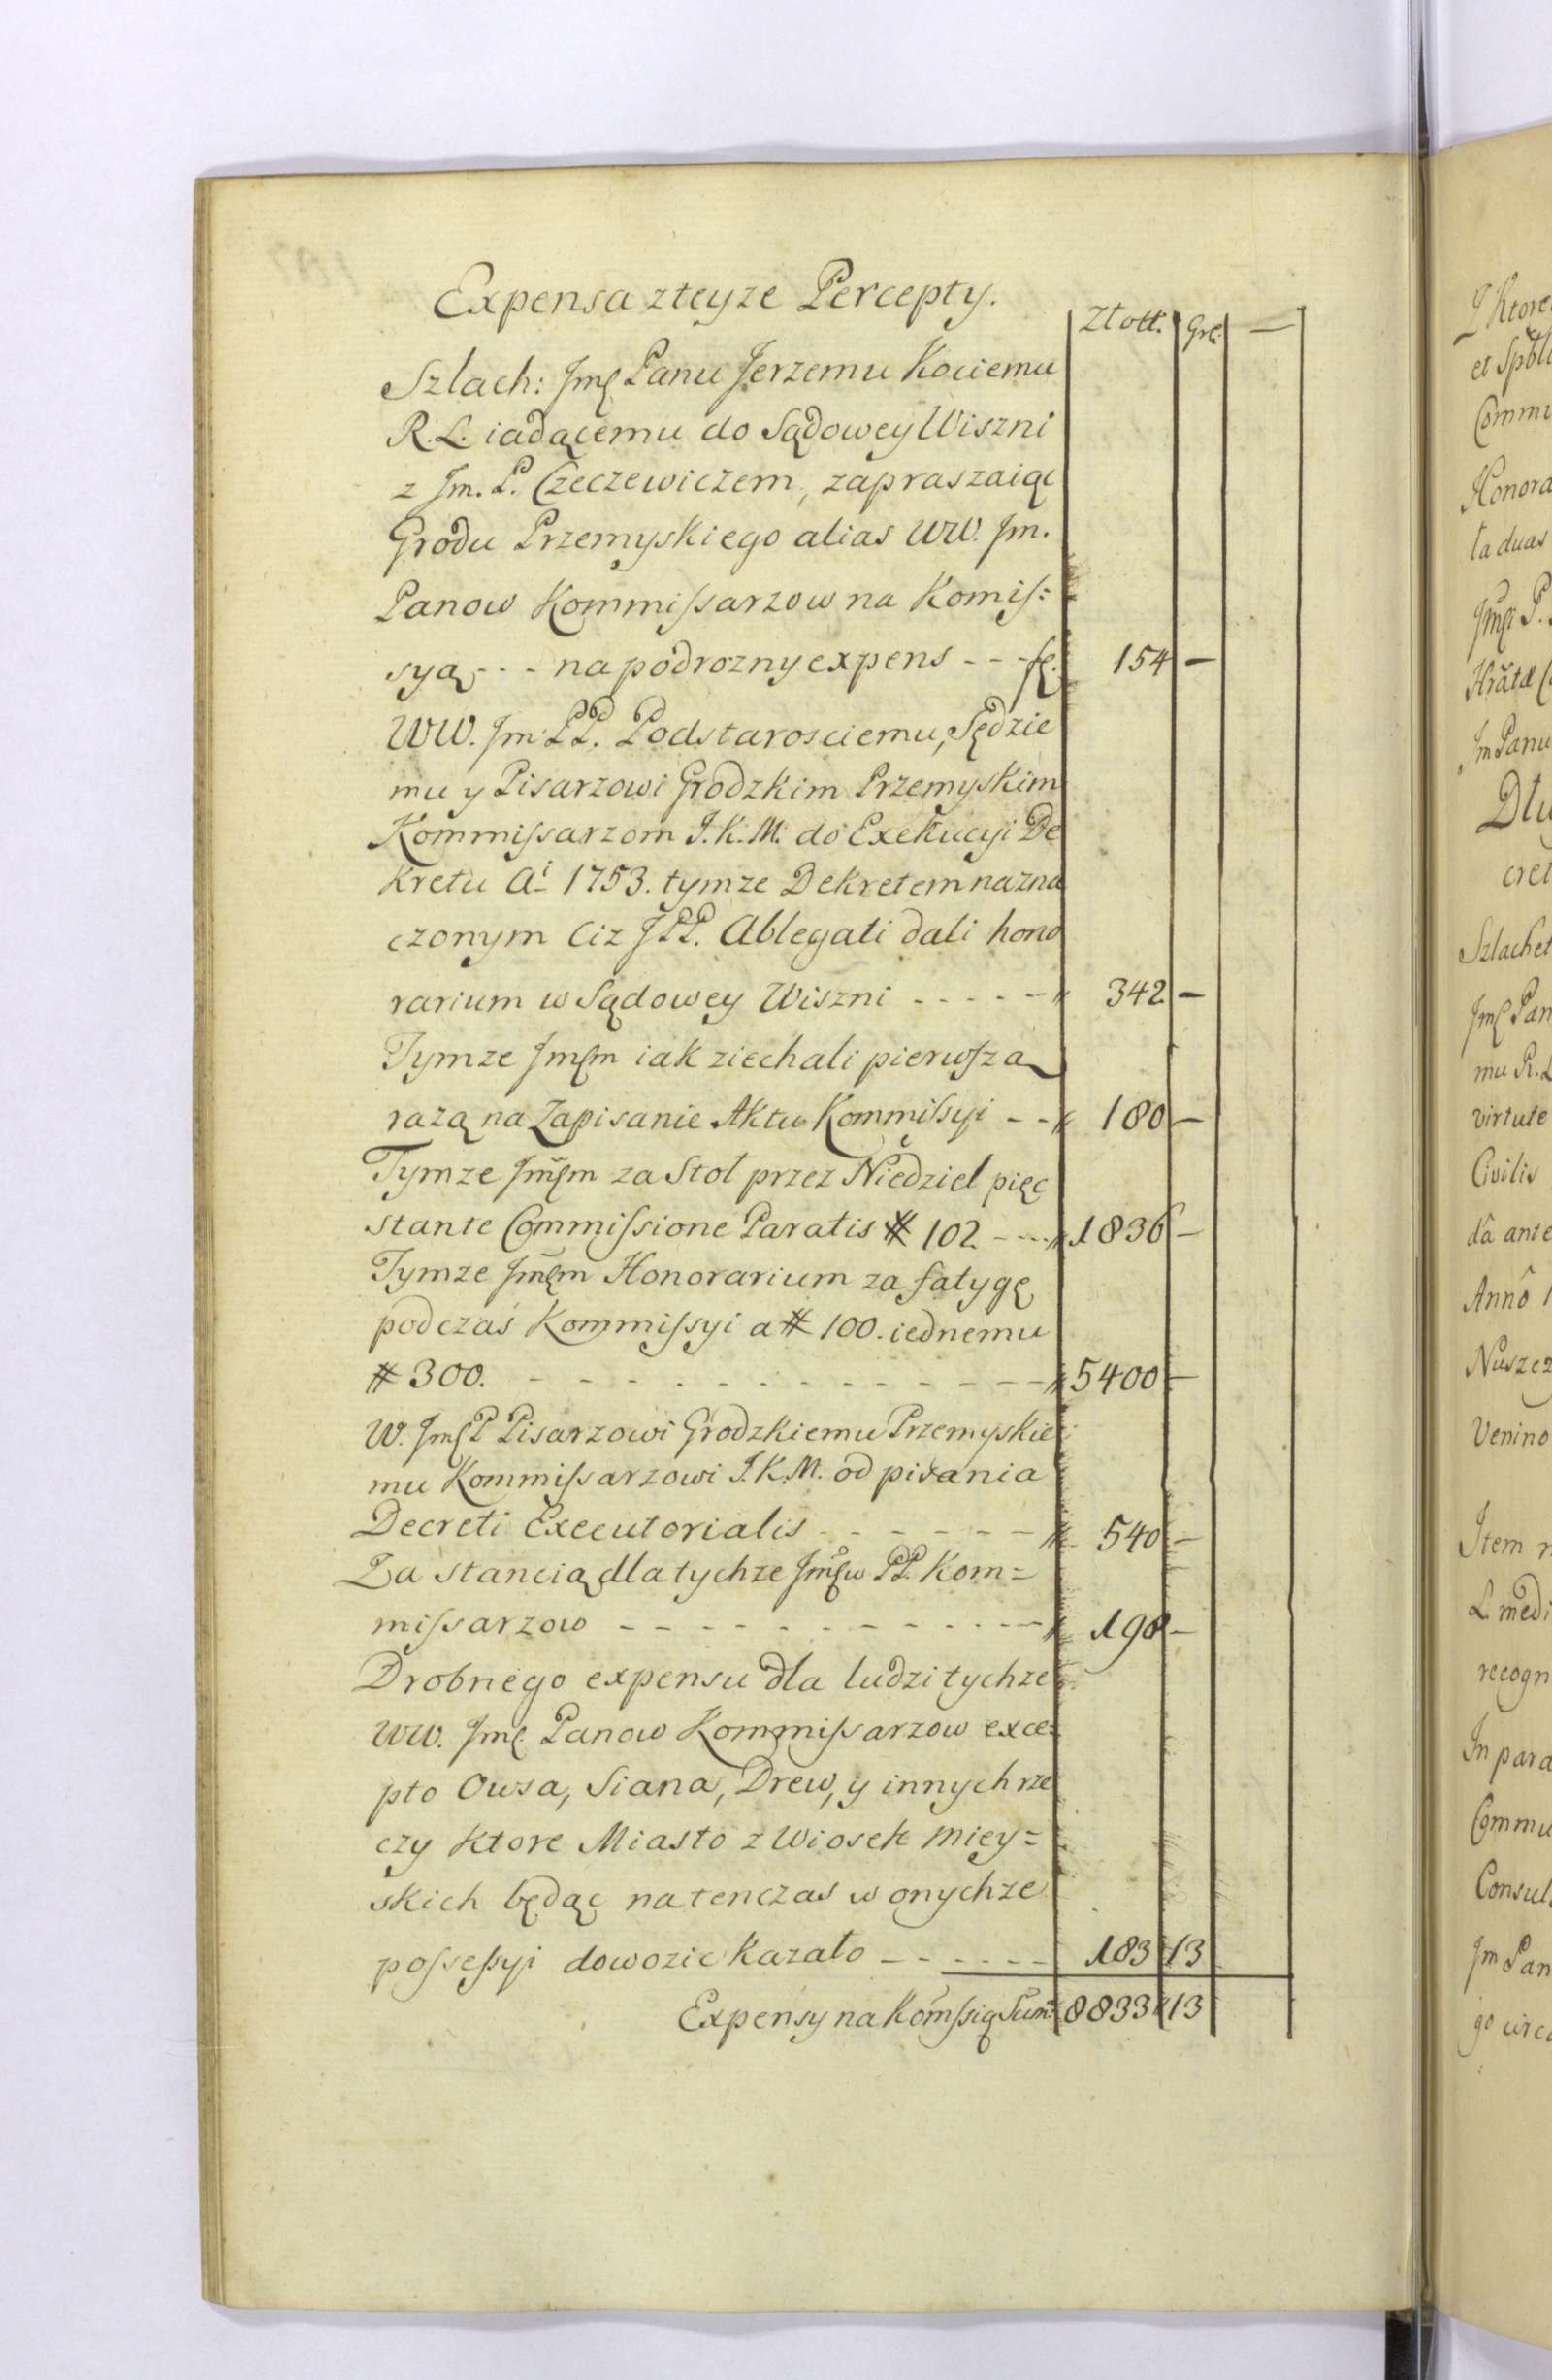 Expensa z teyze Percepty.
Złott. Gr. —
Szlach: Jmę Panu Jerzemu Kociemu
R. L. iadącemu do Sądowey Wiszni
z Jm. P. Czeczewiczem, zapraszaiąc
Grodu Przemyskiego alias WW. Jm.
Panow Kommiſsarzow na Komiſ:
syą - - - na podrozny expens - - - 154 —
WW. Jm: PP. Podstarosciemu, Sędzie
mu y Pisarzowi Grodzkim Przemyskim
Kommiſsarzom J. K. M. do Exekucyi De
kretu Ai 1753. tymze Dekretem nazna
czonym Ciz JPP. Ablegati dali hono
rarium w Sądowey Wiszni - - - - - 342 —
Tymze Jmęm iak ziechali pierwſzą
razą na Zapisanie Aktu Kommiſsyi - - 180 —
Tymze Jmęm za Stoł przez Niedziel pięc
stante Commiſsione Paratis # 102 - - - 1836 —
Tymze Jmęm Honorarium za fatygę
podczas Kommiſsyi a # 100. iednemu
# 300. - - - - - - - - - - - - - 5400 —
W. JmęP Pisarzowi Grodzkiemu Przemyskie
mu Kommiſsarzowi J. K. M. od pisania
Decreti Executorialis - - - - - - 540 —
Za stancią dla tychze Jmęw PP. Kom=
miſsarzow - - - - - - - - - - - 198 —
Drobnego expensu dla ludzi tychze
WW. Jmę. Panow Kommiſsarzow exce=
pto Owsa, Siana, Drew, y innych rze
czy ktore Miasto z Wiosek miey=
skich będąc natenczas w onychze
poſseſsyi dowozic kazało - - - - - - 183 13
Expensy na Komſsią Sum: 8833 13